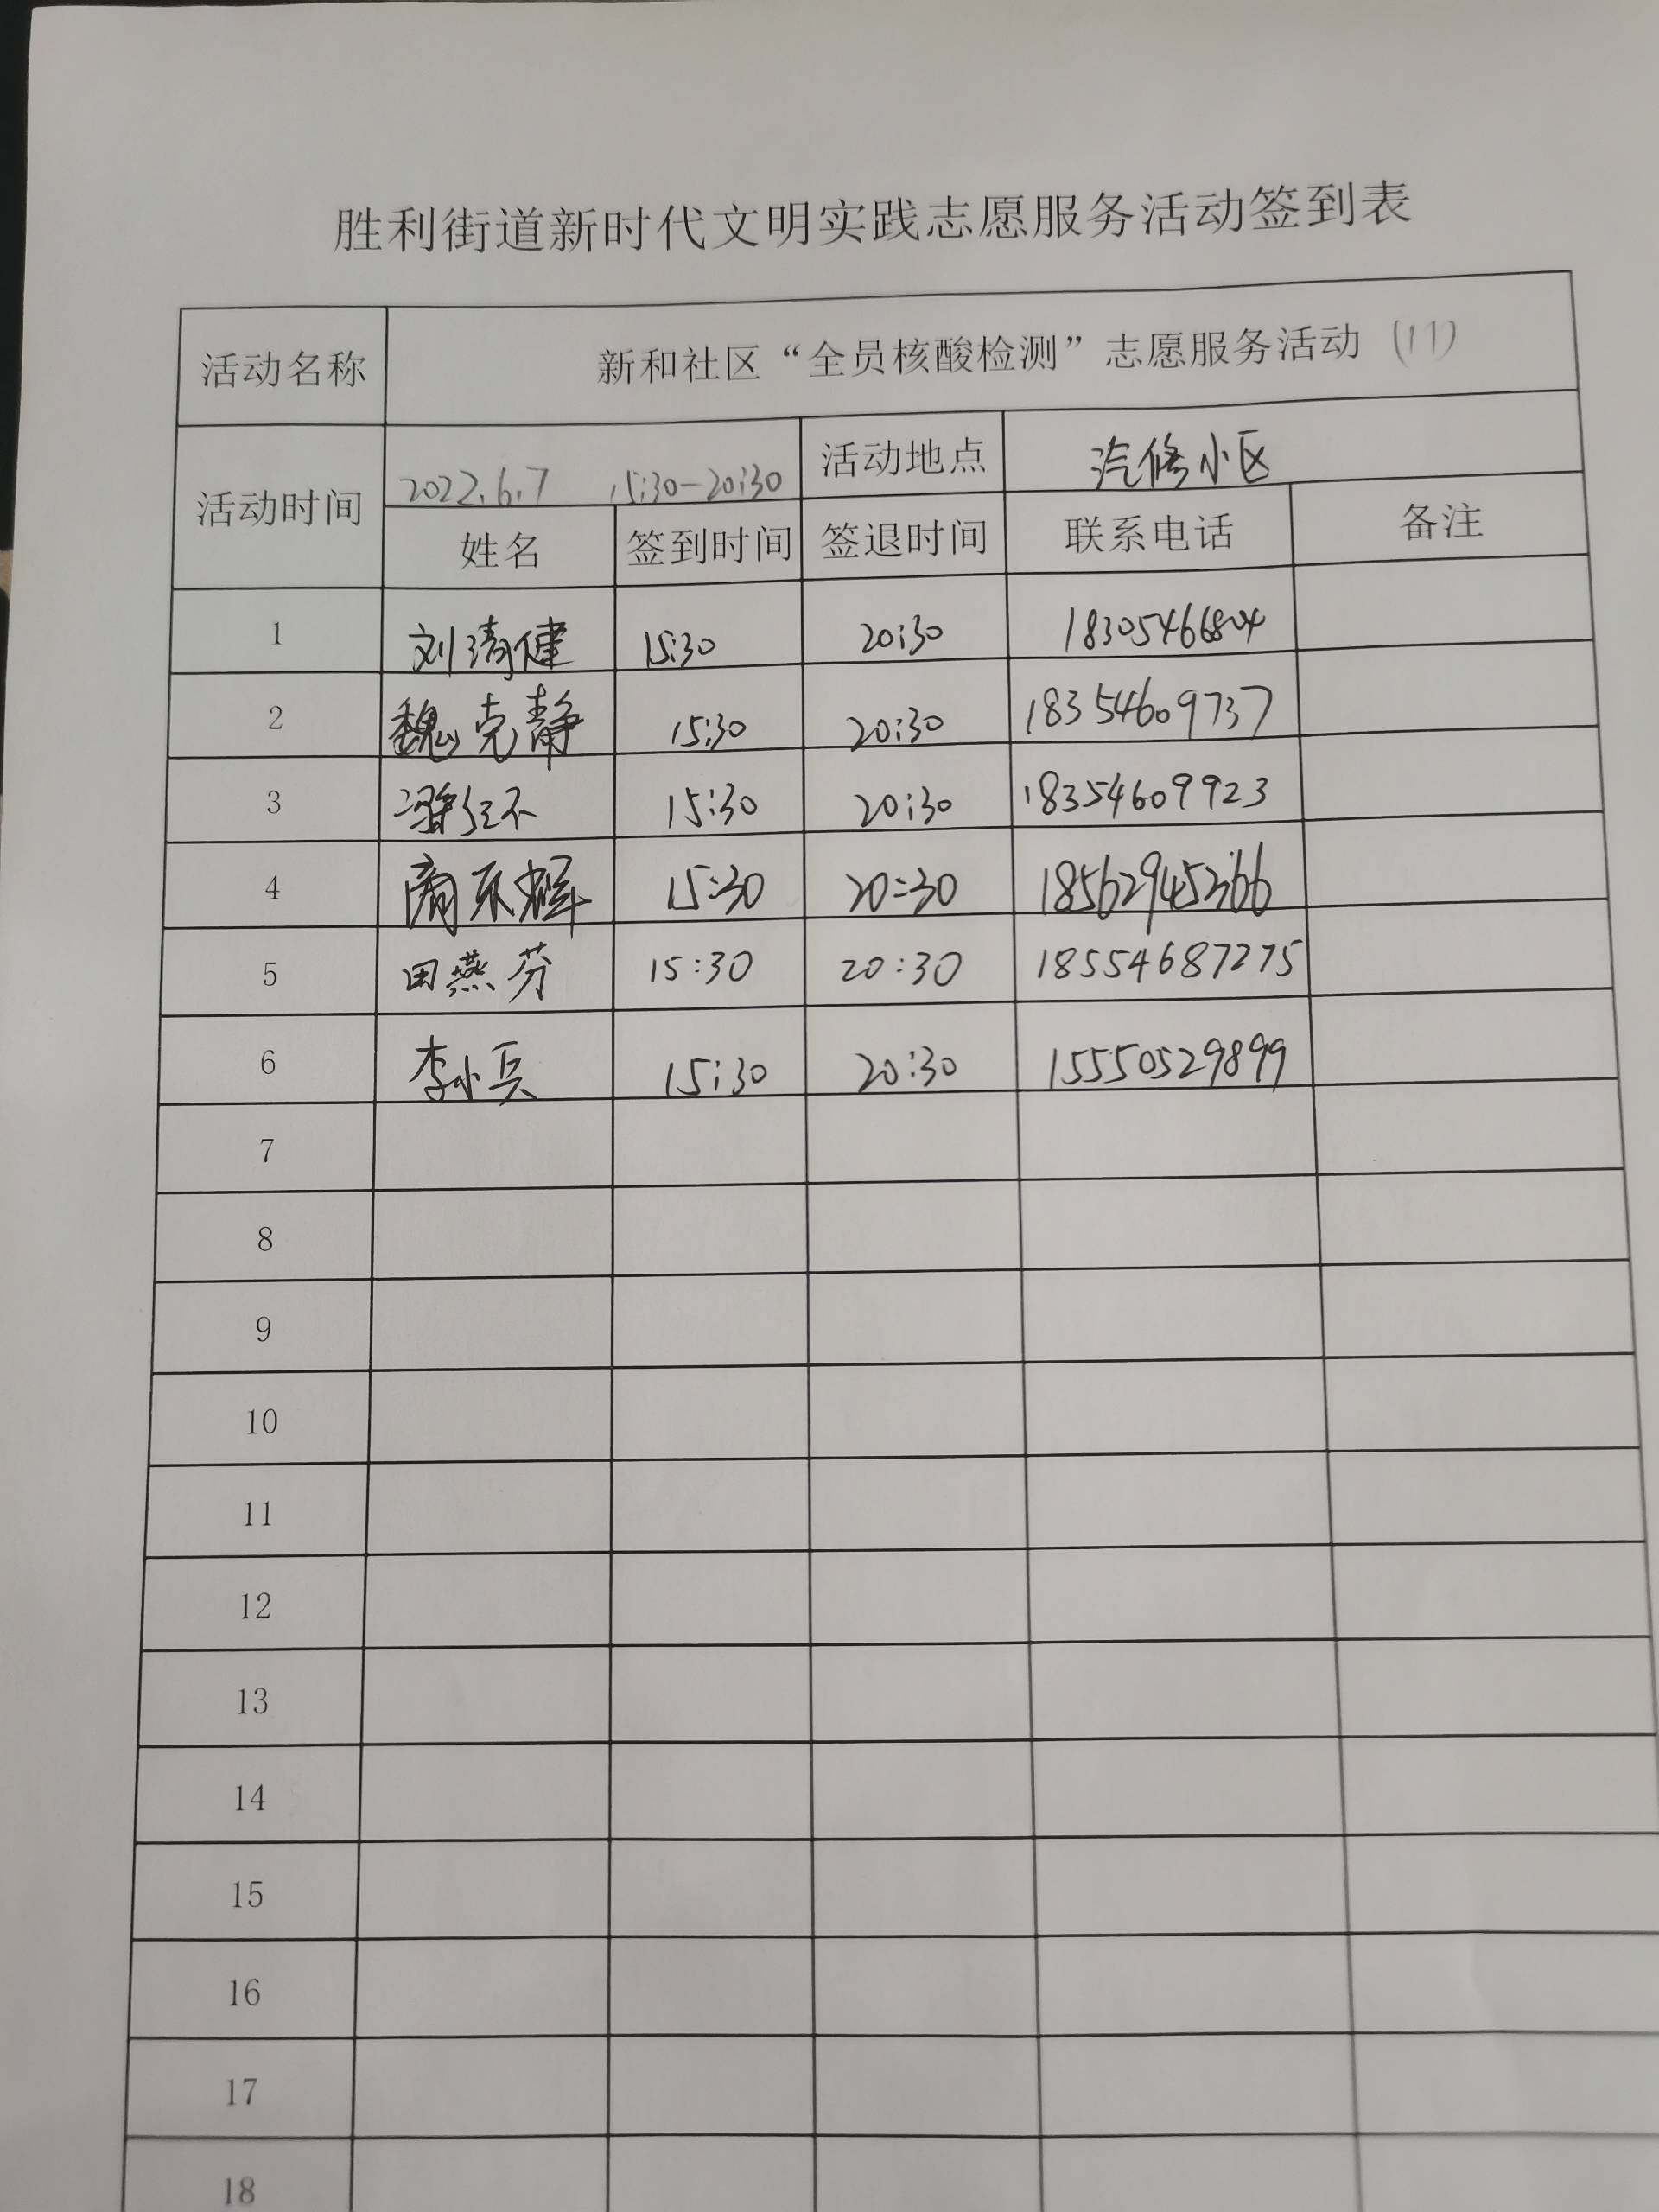 胜利街道新时代文明实践志愿服务活动签到表
活动名称 新和社区“全员核酸检测”志愿服务活动 (11)
活动时间 2022.6.7 15:30-20:30 活动地点 汽修小区
姓名 签到时间 签退时间 联系电话 备注
1 刘清健 15:30 20:30 18305466804
2 魏克静 15:30 20:30 18354609737
3 15:30 20:30 18354609923
4 15:30 20:30 18562945366
5 田燕芬 15:30 20:30 18554687275
6 李小兵 15:30 20:30 15550529899
7
8
9
10
11
12
13
14
15
16
17
18